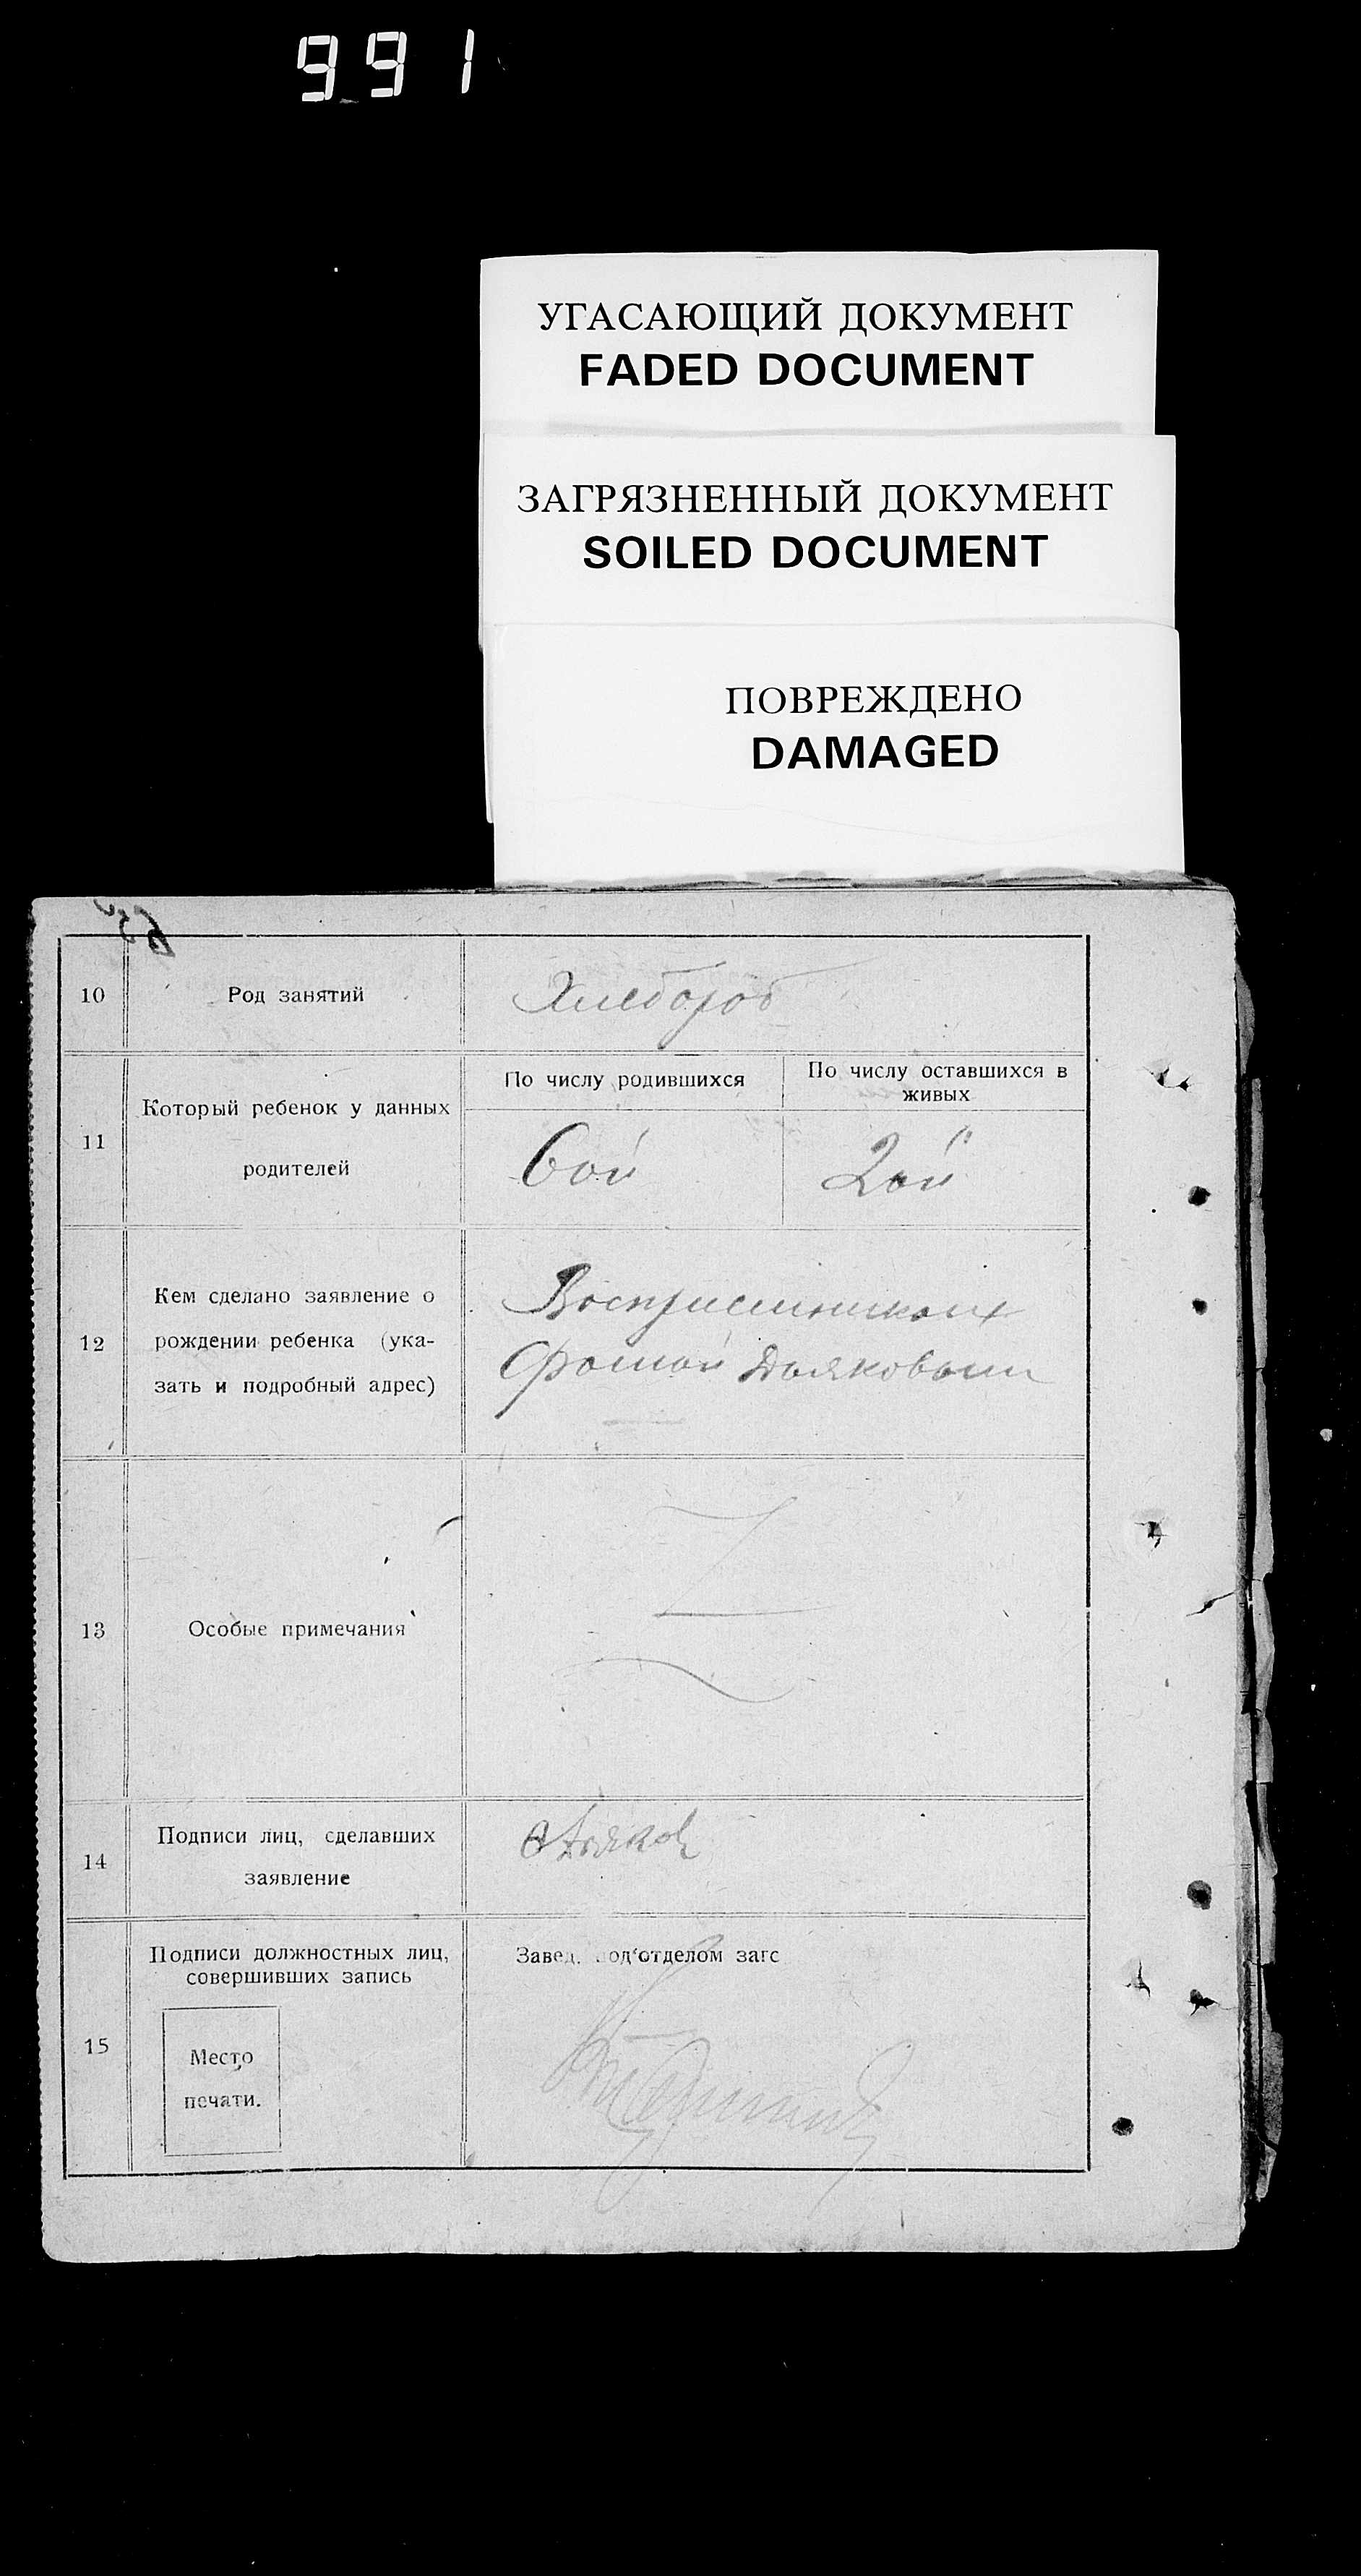 991
УГАСАЮЩИЙ ДОКУМЕНТ
FADED DOCUMENT
ЗАГРЯЗНЕННЫЙ ДОКУМЕНТ
SOILED DOCUMENT
ПОВРЕЖДЕНО
DAMAGED
10
Род занятий
Хлебороб
11
Который ребенок у данных
родителей
По числу родившихся
По числу оставшихся в
живых
6ой
2ой
12
Кем сделано заявление о
рождении ребенка (ука-
зать и подробный адрес)
Восприемником
Фомой Дьяковым
13
Особые примечания
14
Подписи лиц, сделавших
заявление
Дьяков
15
Подписи должностных лиц,
совершивших запись
Место
печати.
Завед. под'отделом загс